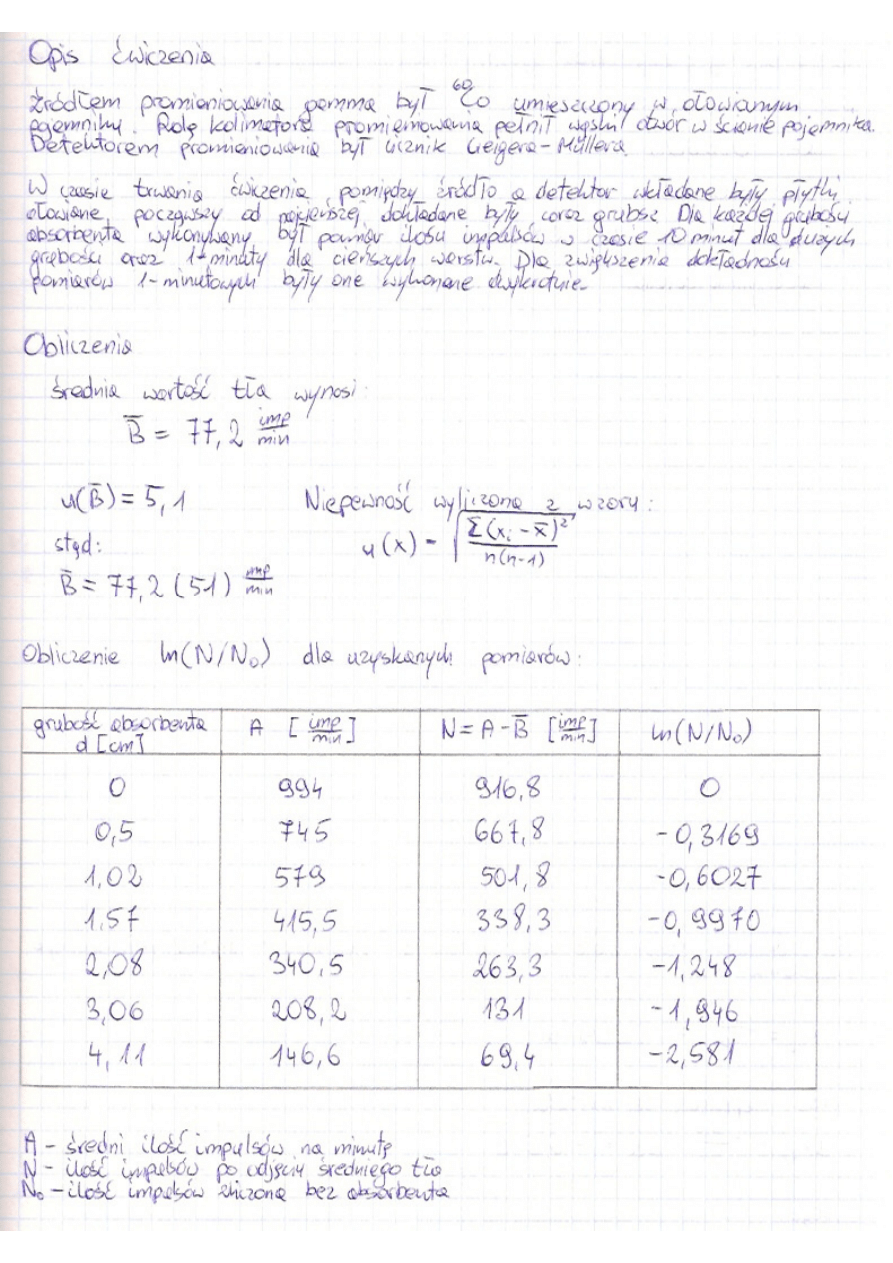 Opis ćwiczenia
źródłem promieniowania gamma był ⁶⁰Co umieszczony w ołowianym
pojemniku. Rolę kolimatora promieniowania pełnił wąski otwór w ścianie pojemnika.
Detektorem promieniowania był licznik Geigera-Müllera
W czasie trwania ćwiczenia pomiędzy źródło a detektor wkładane były płytki
ołowiane, począwszy od najcieńszej, dokładane były coraz grubsze Dla każdej grubości
absorbenta wykonywany był pomiar ilości impulsów w czasie 10 minut dla dużych
grubości oraz 1-minuty dla cieńszych warstw. Dla zwiększenia dokładności
pomiarów 1-minutowych były one wykonane dwukrotnie.
Obliczenia
średnia wartość tła wynosi:
B̅ = 77,2 imp/min
u(B̅) = 5,1 Niepewność wyliczona z wzoru:
stąd: u(x) = √(Σ(xᵢ - x̅)²/n(n-1))
B̅ = 77,2 (51) imp/min
Obliczenie ln(N/N₀) dla uzyskanych pomiarów:
grubość absorbenta d [cm] A [imp/min] N = A - B̅ [imp/min] ln(N/N₀)
0 994 916,8 0
0,5 745 667,8 -0,3169
1,02 579 501,8 -0,6027
1.57 415,5 338,3 -0,9970
2,08 340,5 263,3 -1,248
3,06 208,2 131 -1,946
4,11 146,6 69,4 -2,581
A - średni ilość impulsów na minutę
N - ilość impulsów po odjęciu średniego tła
N₀ - ilość impulsów zliczona bez absorbenta